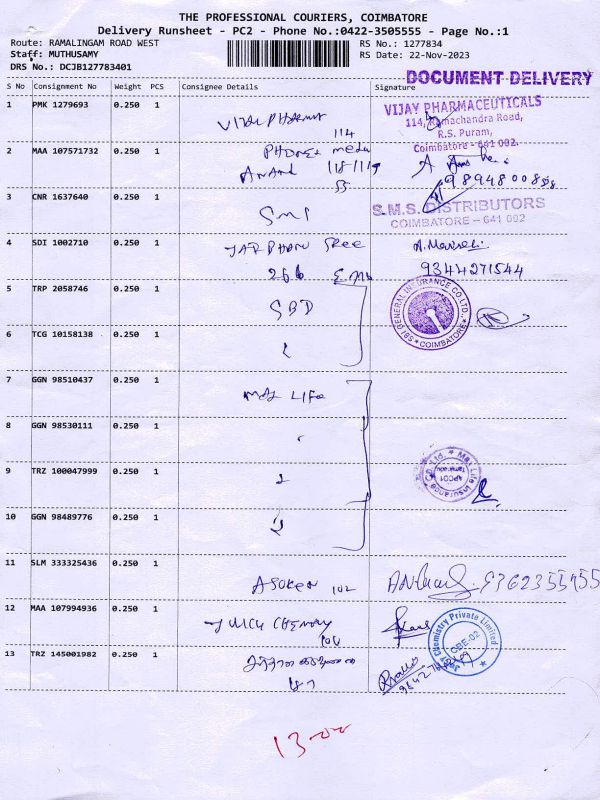 THE PROFESSIONAL COURIERS, COIMBATORE
Delivery Runsheet - PC2 - Phone No.:0422-3505555 - Page No.:1
Route: RAMALINGAM ROAD WEST
Staff: MUTHUSAMY
DRS No.: DCJB127783401
RS No.: 1277834
RS Date: 22-Nov-2023
DOCUMENT DELIVERY
S No Consignment No Weight PCS Consignee Details Signature
1 PMK 1279693 0.250 1
114
VIJAY PHARMACEUTICALS
114, Ramachandra Road,
R.S. Puram,
Coimbatore - 641 002.
2 MAA 107571732 0.250 1
ANAND 118/119
3 CNR 1637640 0.250 1
S.M.S. DISTRIBUTORS
COIMBATORE - 641 002
4 SDI 1002710 0.250 1
266
9344271544
5 TRP 2058746 0.250 1 SBD
SBI GENERAL INSURANCE CO.LTD.,
COIMBATORE
6 TCG 10158138 0.250 1
7 GGN 98510437 0.250 1 MAX LIFE
8 GGN 98530111 0.250 1
9 TRZ 100047999 0.250 1
Max Life Insurance Co. Ltd.
10 GGN 98489776 0.250 1
11 SLM 333325436 0.250 1
ASOKEN 102
12 MAA 107994936 0.250 1
104
Chemistry Private Limited
CBE-02
13 TRZ 145001982 0.250 1
13